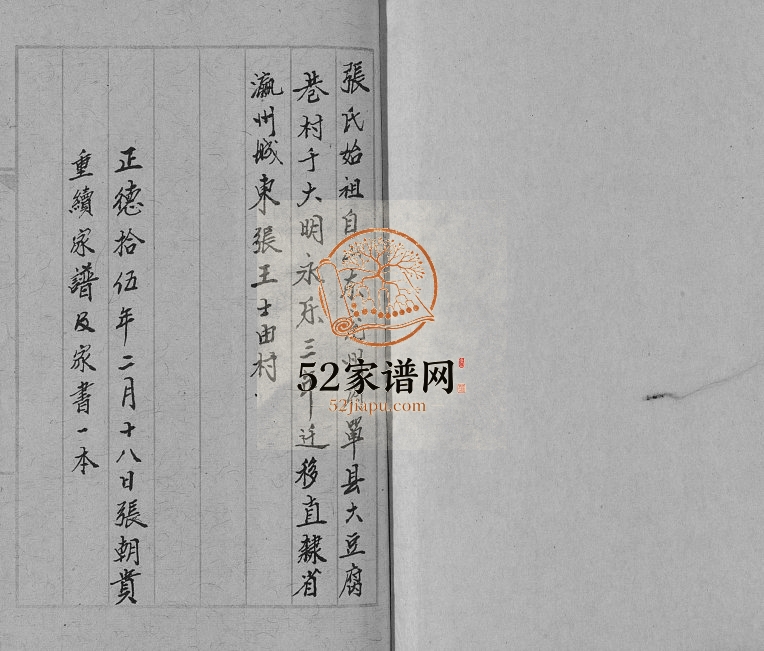 張氏始祖自山东兖州府單县大豆腐
巷村于大明永乐三年迁移直隸省
瀛州城東張王士由村.
正德拾伍年二月十八日張朝貴
重續家譜及家書一本
52家谱网
52jiapu.com